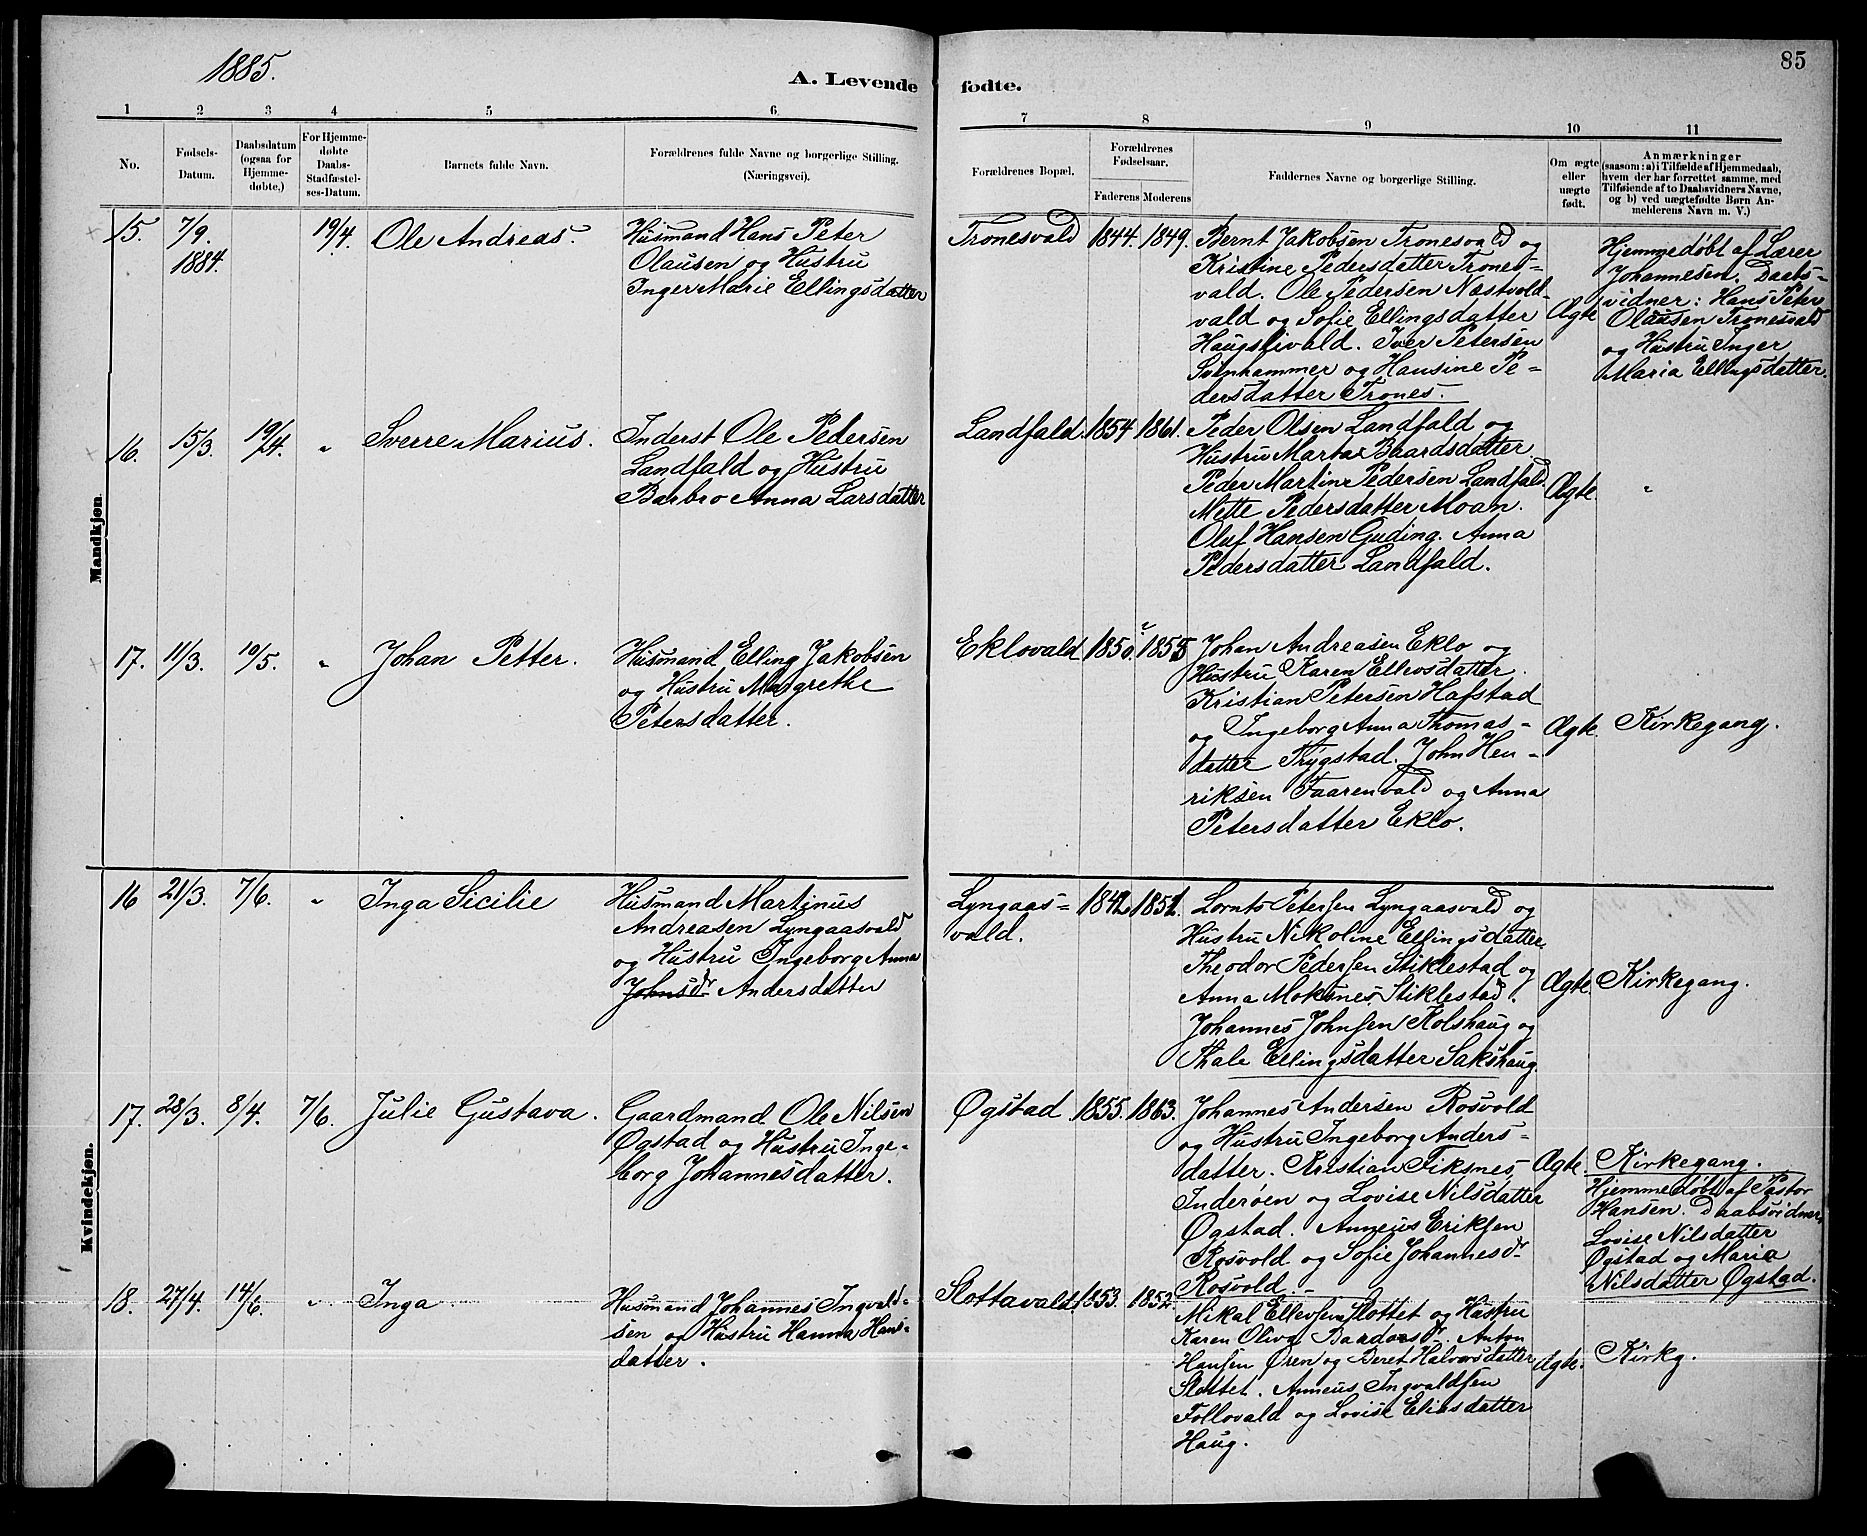 1885.
85
A. Levende fødte.
1 2 3 4 5 6 7 8 9 10 11
No.
Fødsels-
Datum.
Daabsdatum
(ogsaa for
Hjemme-
døbte,)
For Hjemme-
døbte
Daabs-
Stadfæstel-
ses-Datum.
Barnets fulde Navn.
Forældrenes fulde Navne og borgerlige Stilling.
(Næringsvei).
Forældrenes Bopæl.
Forældrenes
Fødselsaar.
Faderens Moderens
Faddernes Navne og borgerlige Stilling.
Om ægte
eller
uægte
født.
Anmærkninger
(saasom: a) i Tilfælde af Hjemmedaab,
hvem der har forrettet samme, med
Tilføiende af to Daabsvidners Navne,
og b) ved uægtefødte Børn An-
melderens Navn m. V.)
Mandkjøn.
15.
7/9.
1884.
19/4.
Ole Andreas.
Husmand Hans Peter
Olausen og Hustru
Inger Marie Ellingsdatter
Tronesvald
1844.
1849.
Bernt Jakobsen Tronesvald og
Kristine Pedersdatter Trones-
vald. Ole Pedersen Næstvold-
vald og Sofie Ellingsdatter
Haugslivald. Iver Petersen
Svinhammer og Hansine Pe-
dersdatter Trones.
Ægte
Hjemmedøbt af Lærer
Johannesen. Daabs-
vidner: Hans Peter
Olausen Tronesvald
og Hustru Inger
Maria Ellingsdatter.
16.
15/3.
19/4.
"
Sverre Marius.
Inderst Ole Pedersen
Landfald og Hustru
Barbro Anna Larsdatter
Landfald.
1854
1861.
Peder Olsen Landfald og
Hustru Marta Baardsdatter.
Peder Martin Pedersen Landfald.
Mette Pedersdatter Moan.
Oluf Hansen Guding. Anna
Pedersdatter Landfald.
Ægte.
"
17.
11/3.
10/5.
"
Johan Petter.
Husmand Elling Jakobsen
og Hustru Margrethe
Petersdatter.
Eklovald
1850.
1855
Johan Andreasen Eklo og
Hustru Karen Ellevsdatter.
Kristian Petersen Hafstad
og Ingeborg Anna Thomas-
datter Trygstad. John Hen-
riksen Faarenvald og Anna
Petersdatter Eklo.
Ægte.
Kirkegang.
Kvindekjøn.
16
21/3.
7/6.
"
Inga Sicilie
Husmand Martinus
Andreasen Lyngaasvald
og Hustru Ingeborg Anna
Johnsdr Andersdatter
Lyngaas-
vald.
1842
1851.
Lornts Petersen Lyngaasvald og
Hustru Nikoline Ellingsdatter.
Theodor Pedersen Stiklestad og
Anna Moksnes Stiklestad.
Johannes Johnsen Kolshaug og
Thale Ellingsdatter Sakshaug
Ægte.
Kirkegang.
17.
28/3.
8/4.
7/6.
Julie Gustava.
Gaardmand Ole Nilsen
Øgstad og Hustru Inge-
borg Johannesdatter.
Øgstad
1855.
1863.
Johannes Andersen Rosvold
og Hustru Ingeborg Anders-
datter. Kristian Fiksnes
Inderøen og Lovise Nilsdatter
Øgstad. Anneus Eriksen
Rosvold og Sofie Johannesdr
Rosvold.
Ægte.
Kirkegang.
Hjemmedøbt af Pastor
Hansen. Daabsvidner,
Lovise Nilsdatter
Øgstad og Maria
Nilsdatter Øgstad.
18.
27/4.
14/6.
"
Inga
Husmand Johannes Ingvald-
sen og Hustru Hanna Hans-
datter.
Slottavald
1853.
1852.
Mikal Ellevsen Slottet og Hustru
Karen Oliva Baardsdr. Anton
Hansen Ören og Beret Halvorsdatter
Slottet. Anneus Ingvaldsen
Follovald og Lovise Eliasdatter
Haug.
Ægte.
Kirkg.